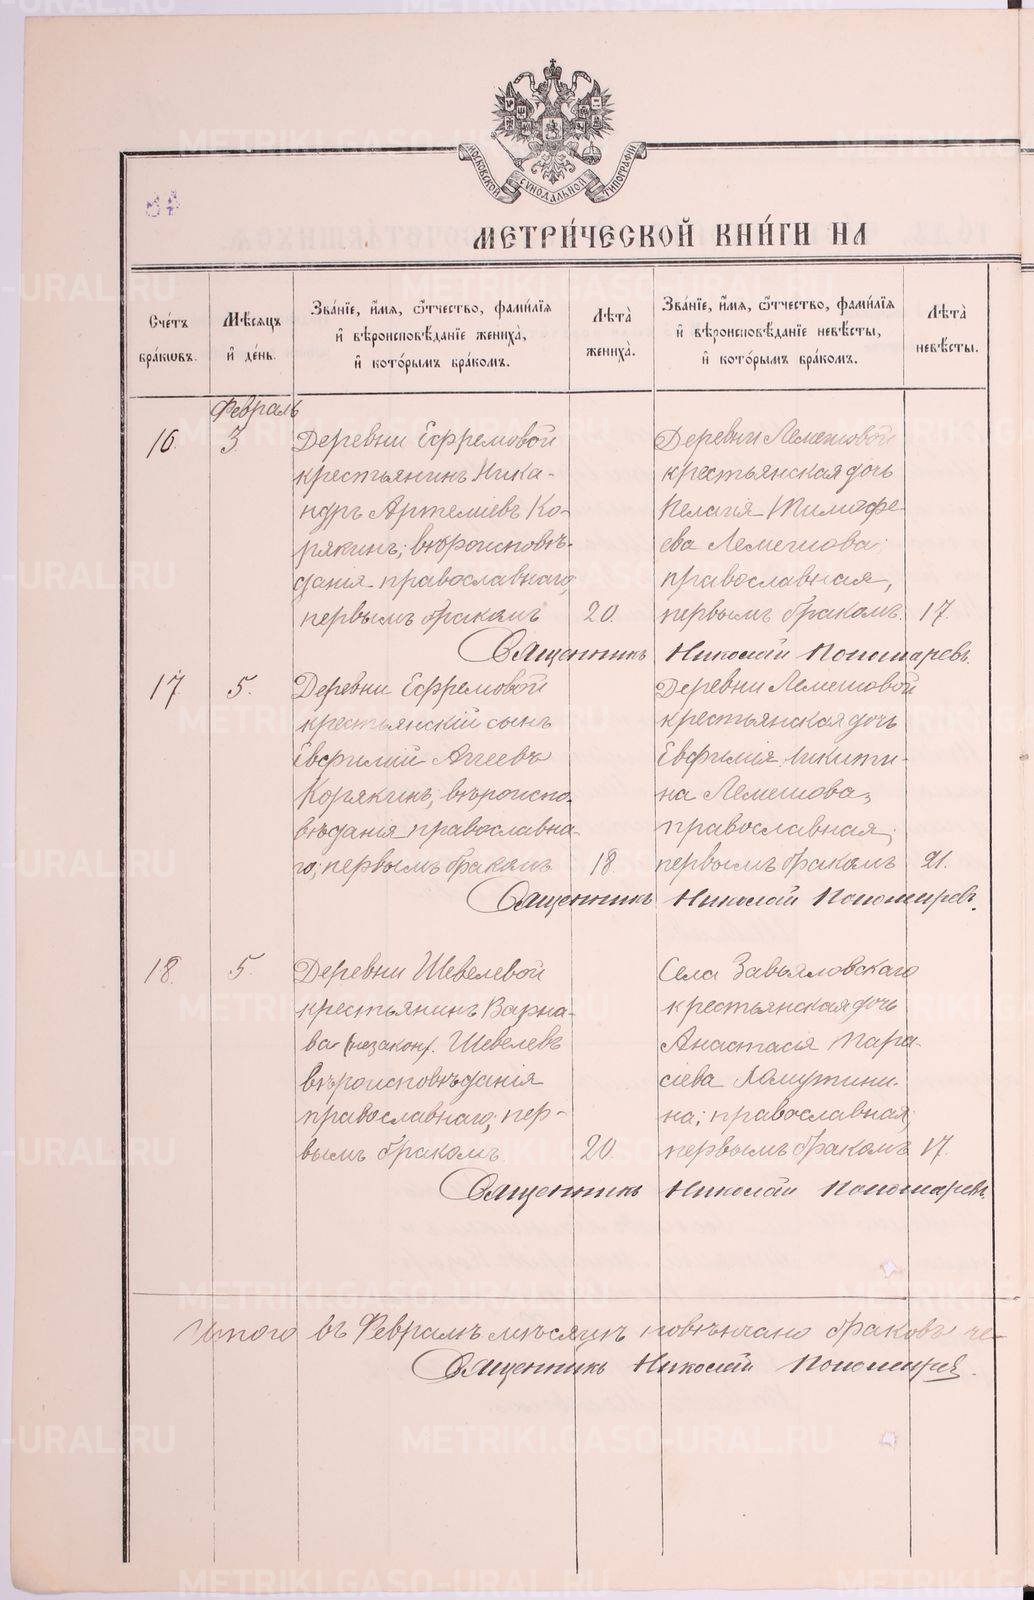 МОСКОВСКОЙ СѴНОДАЛЬНОЙ ТИПОГРАФІИ
МЕТРИ́ЧЕСКОЙ КНИ́ГИ НА
Сче́тъ бра́кωвъ.
Мѣ́сяцъ и҆ де́нь.
Зва́нїе, и҆́мя, ѻ҆́тчество, фами́лїя
и҆ вѣроисповѣ́данїе жениха̀,
и҆ кото́рымъ бра́комъ.
Лѣ́та жениха̀.
Зва́нїе, и҆́мя, ѻ҆́тчество, фами́лїя
и҆ вѣроисповѣ́данїе невѣ́сты,
и҆ кото́рымъ бра́комъ.
Лѣ́та невѣ́сты.
Февраль
16. 3. Деревни Ефремовой
крестьянинъ Ника-
ндръ Артеміевъ Ко-
рякинъ; вѣроисповѣ-
данія православнаго,
первымъ бракомъ 20.
Деревни Лемешовой
крестьянская дочь
Пелагія Тимофе-
ева Лемешова;
православная,
первымъ бракомъ. 17.
Священникъ Николай Пономаревъ.
17. 5. Деревни Ефремовой
крестьянскій сынъ
Евфимій Аггеевъ
Корякинъ; вѣроиспо-
вѣданія православна-
го; первымъ бракомъ 18.
Деревни Лемешовой
крестьянская дочь
Евфимія Никити-
на Лемешова,
православная;
первымъ бракомъ 21.
Священникъ Николай Пономаревъ.
18. 5. Деревни Шевелевой
крестьянинъ Варна-
ва (незакон). Шевелевъ
вѣроисповѣданія
православнаго; пер-
вымъ бракомъ 20.
Села Завьяловскаго
крестьянская дочь
Анастасія Тара-
сіева
на; православная;
первымъ бракомъ 17.
Священникъ Николай Пономаревъ.
Итого въ Февралѣ мѣсяцѣ повѣнчано браковъ че-
Священникъ Николай Пономаревъ.
METRIKI.GASO-URAL.RU